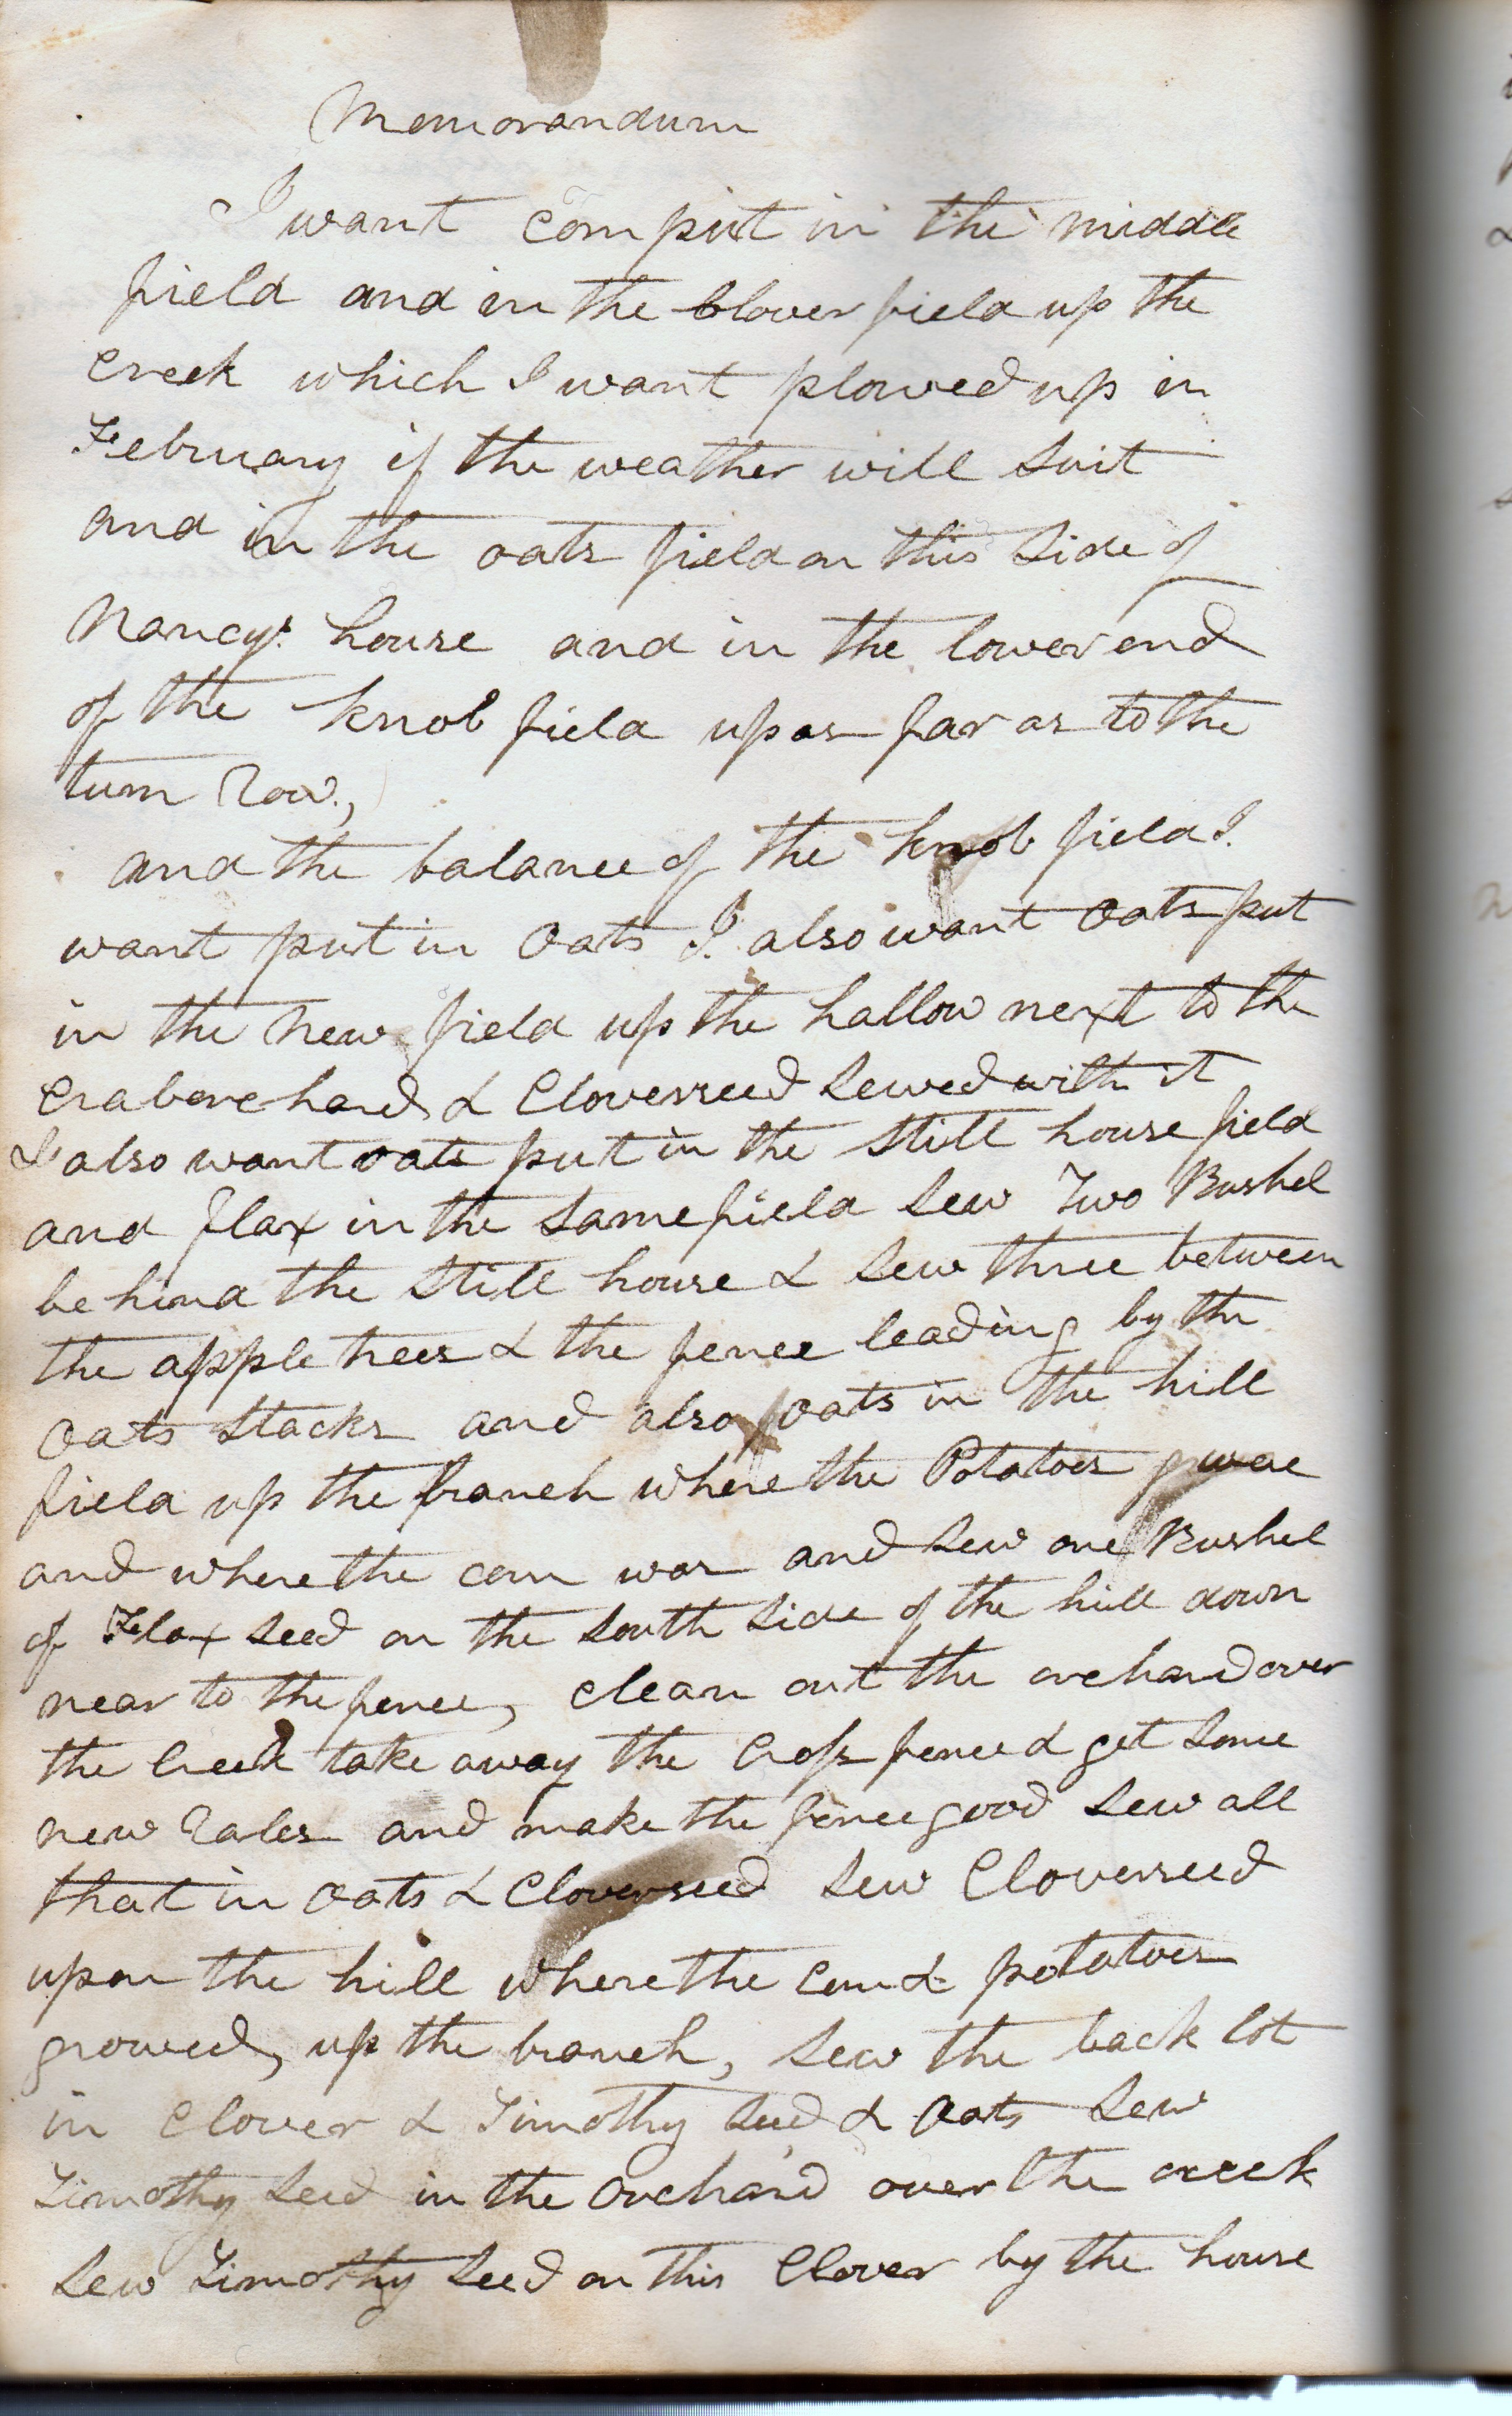 Memorandum
I want corn put in the middle
field and in the Clover field up the
Creek which I want plowed up in
February if the weather will suit
and in the oats field on this side of
Nancys house and in the lower end
of the knob field up as far as to the
turn Row,
and the balance of the knob field I
want put in Oats I also want Oats put
in the New field up the hallow next to the
Craborchard & Cloverseed sewed with it
I also want oats put in the Still house field
and flax in the same field sew Two Bushel
behind the Still house & sew three between
the apple trees & the fence leading by the
Oats Stacks and also oats in the hill
field up the branch where the Potatoes were
and where the corn was and sew one Bushel
of Flax seed on the south side of the hill down
near to the fence, clean out the orchard over
the Creek take away the Cross fence & get some
new Rales and make the fence good sew all
that in Oats & Cloverseed sew Cloverseed
upon the hill where the corn & potatoes
growed, up the branch, sew the back lot
in Clover & Timothy seed & Oats sew
Timothy seed in the Orchard over the creek
sew Timothy seed on this Clover by the house